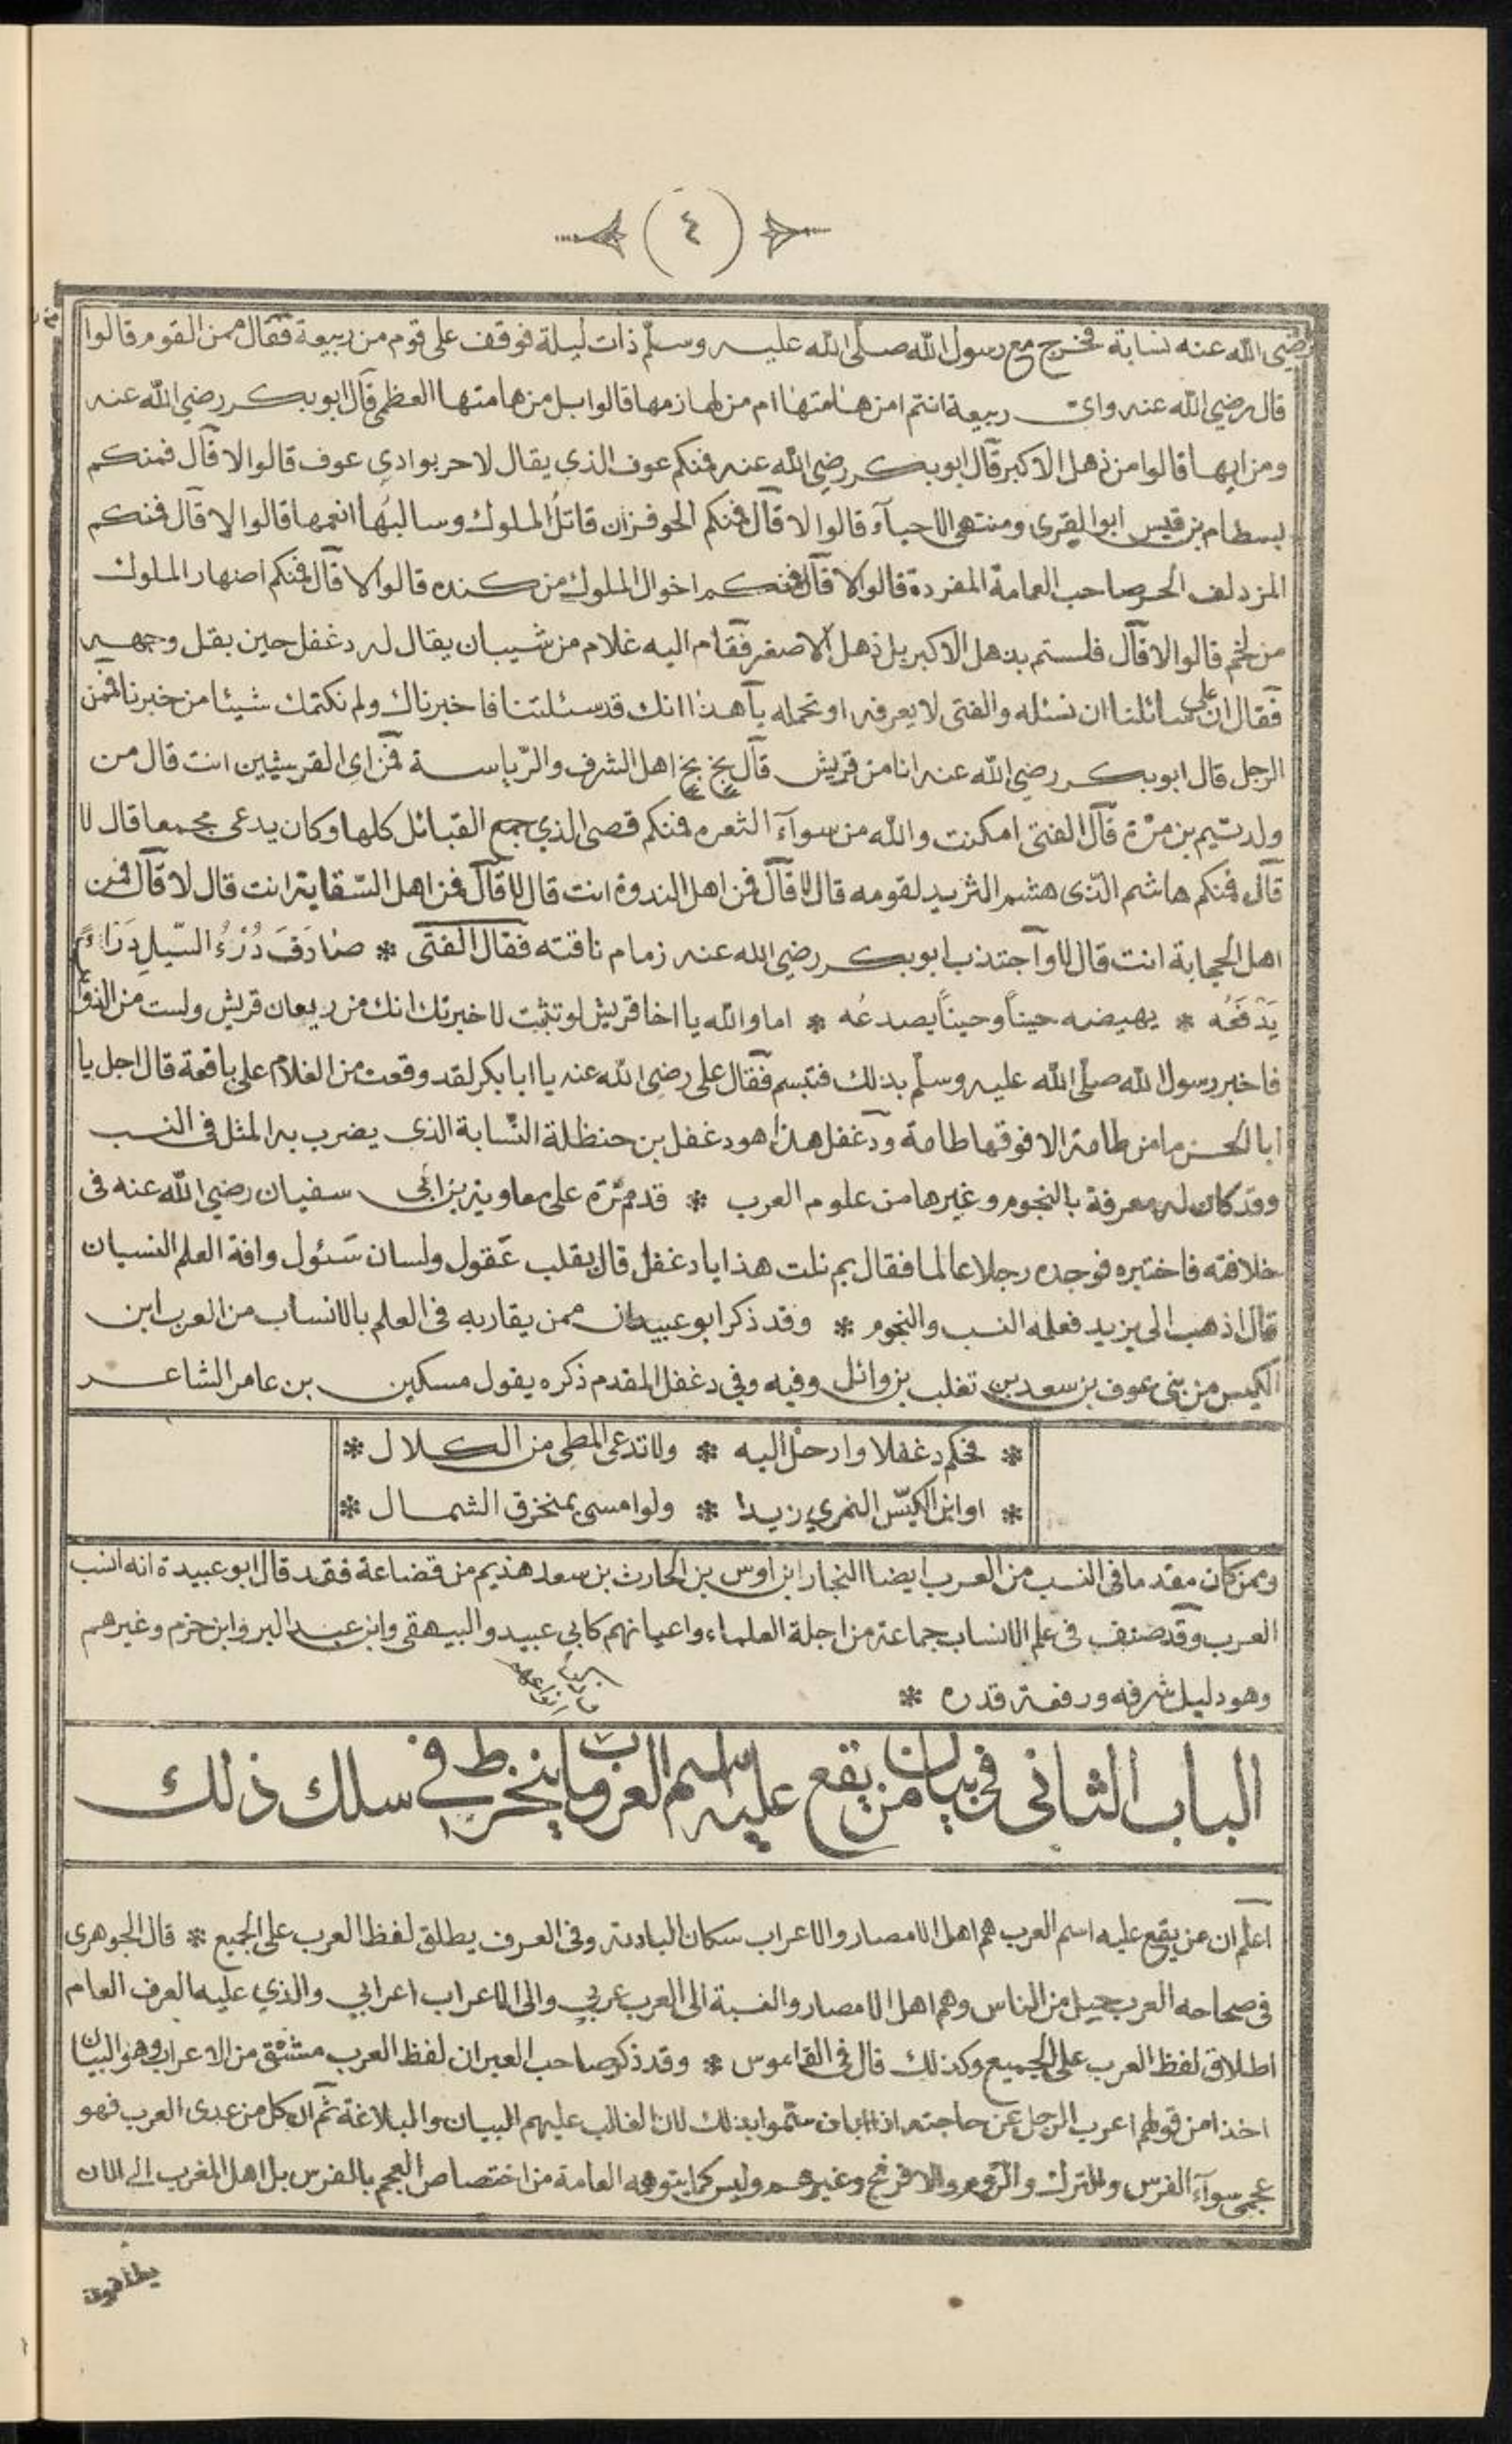 (٤)
رضي الله عنه نسابة فخرج مع رسول الله صلّى الله عليه وسلّم ذات ليلة فوقف على قوم من ربيعة فقال ممن القوم قالوا
قال رضي الله عنه واى ربيعة انتم امن هامتها ام من لهازمها قالوا بل من هامتها العظمى قال ابو بكر رضي الله عنه
ومن ايها قالوا من ذهل الاكبر قال ابو بكر رضي الله عنه فمنكم عوف الذي يقال لا حر بوادي عوف قالوا لا قال فمنكم
بسطام بن قيس ابو القرى ومنتهى الاحياء قالوا لا قال فمنكم الحوفزان قاتلُ الملوك وسالبُها انعمها قالوا لا قال فمنكم
المزدلف الحر صاحب العمامة المفردة قالوا لا قال فمنكم اخوال الملوك من كنده قالوا لا قال فمنكم اصهار الملوك
من لخم قالوا لا قال فلستم بذهل الاكبر بل ذهل الاصغر فقام اليه غلام من شيبان يقال له دغفل حين بقل وجهه
فقال ان على سائلنا ان نسئله والفتى لا يعرفه او تحمله يا هذا انك قد سئلتنا فاخبرناك ولم نكتمك شيئا من خبرنا فمن
الرجل قال ابو بكر رضي الله عنه انا من قريش قال بخ بخ اهل الشرف والرّياسة فمن اى القرشيين انت قال من
ولد تيم بن مرّة قال الفتى امكنت والله من سوآء الثغره فمنكم قصى الذي جمع القبائل كلها وكان يدعى مجمعا قال لا
قال فمنكم هاشم الذى هشم الثريد لقومه قال لا قال فمن اهل الندوة انت قال لا قال فمن اهل السّقاية انت قال لا قال فمن
اهل الحجابة انت قال لا واجتذب ابو بكر رضي الله عنه زمام ناقته فقال الفتى * صَادَفَ دُرْءُ السّيلِ دَرْاءً
يَدْفَعُه * يهيضه حيناً وحيناً يصدعُه * اما والله يا اخا قريش لو تثبت لاخبرتك انك من ريعان قريش ولست من الذوائب
فاخبر رسول الله صلّى الله عليه وسلّم بذلك فتبسم فقال على رضي الله عنه يا ابا بكر لقد وقعت من الغلام على باقعة قال اجل يا
ابا الحسن ما من طامة الا فوقها طامة ودغفل هذا هو دغفل بن حنظلة النّسابة الذى يضرب به المثل فى النسب
وقد كان له معرفة بالنجوم وغيرها من علوم العرب * قدم مّرة على معاوية بن ابى سفيان رضي الله عنه فى
خلافته فاختبره فوجده رجلا عالما فقال بم نلت هذا يا دغفل قال بقلب عَقول ولسان سَئول وافة العلم النسيان
قال اذهب الى يزيد فعلمه النسب والنجوم * وقد ذكر ابو عبيد ان ممن يقاربه فى العلم بالانساب من العرب ابن
الكيس من بنى عوف بن سعد بن تغلب بن وائل وفيه وفي دغفل المقدم ذكره يقول مسكين بن عامر الشاعر
* فحكم دغفلا وارحل اليه * ولا تدعى المطى من الكلال *
* او ابن الكيّس النمري زيدا * ولو امسى بمنخرق الشمال *
وممن كان مقدما فى النسب من العرب ايضا النجار ابن اوس بن الحارث بن سعد هذيم من قضاعة فقد قال ابو عبيدة انه انسب
العرب وقد صنف فى علم الانساب جماعة من اجلة العلماء واعيانهم كابي عبيد والبيهقى وابن عبد البر وابن حزم وغيرهم
وهو دليل شرفه ورفعة قدره *
الباب الثانى فى بيان من يقع عليه اسم العرب وما ينخرط في سلك ذلك
اعلم ان من يقع عليه اسم العرب هم اهل الامصار والاعراب سكان البادية وفى العرف يطلق لفظ العرب على الجميع * قال الجوهرى
فى صحاحه العرب جيل من الناس وهم اهل الامصار والنسبة الى العرب عربي والى الاعراب اعرابي والذي عليه العرف العام
اطلاق لفظ العرب على الجميع وكذلك قال فى القاموس * وقد ذكر صاحب العبر ان لفظ العرب مشتق من الاعراب وهو البيان
اخذا من قولهم اعرب الرجل عن حاجته اذا ابان سمّوا بذلك لان الغالب عليهم البيان والبلاغة ثم ان كل من عدى العرب فهو
عجمى سوآء الفرس والترك والرّوم والافرنج وغيرهم وليس كما يتوهمه العامة من اختصاص العجم بالفرس بل اهل المغرب الى الان
يطلقون